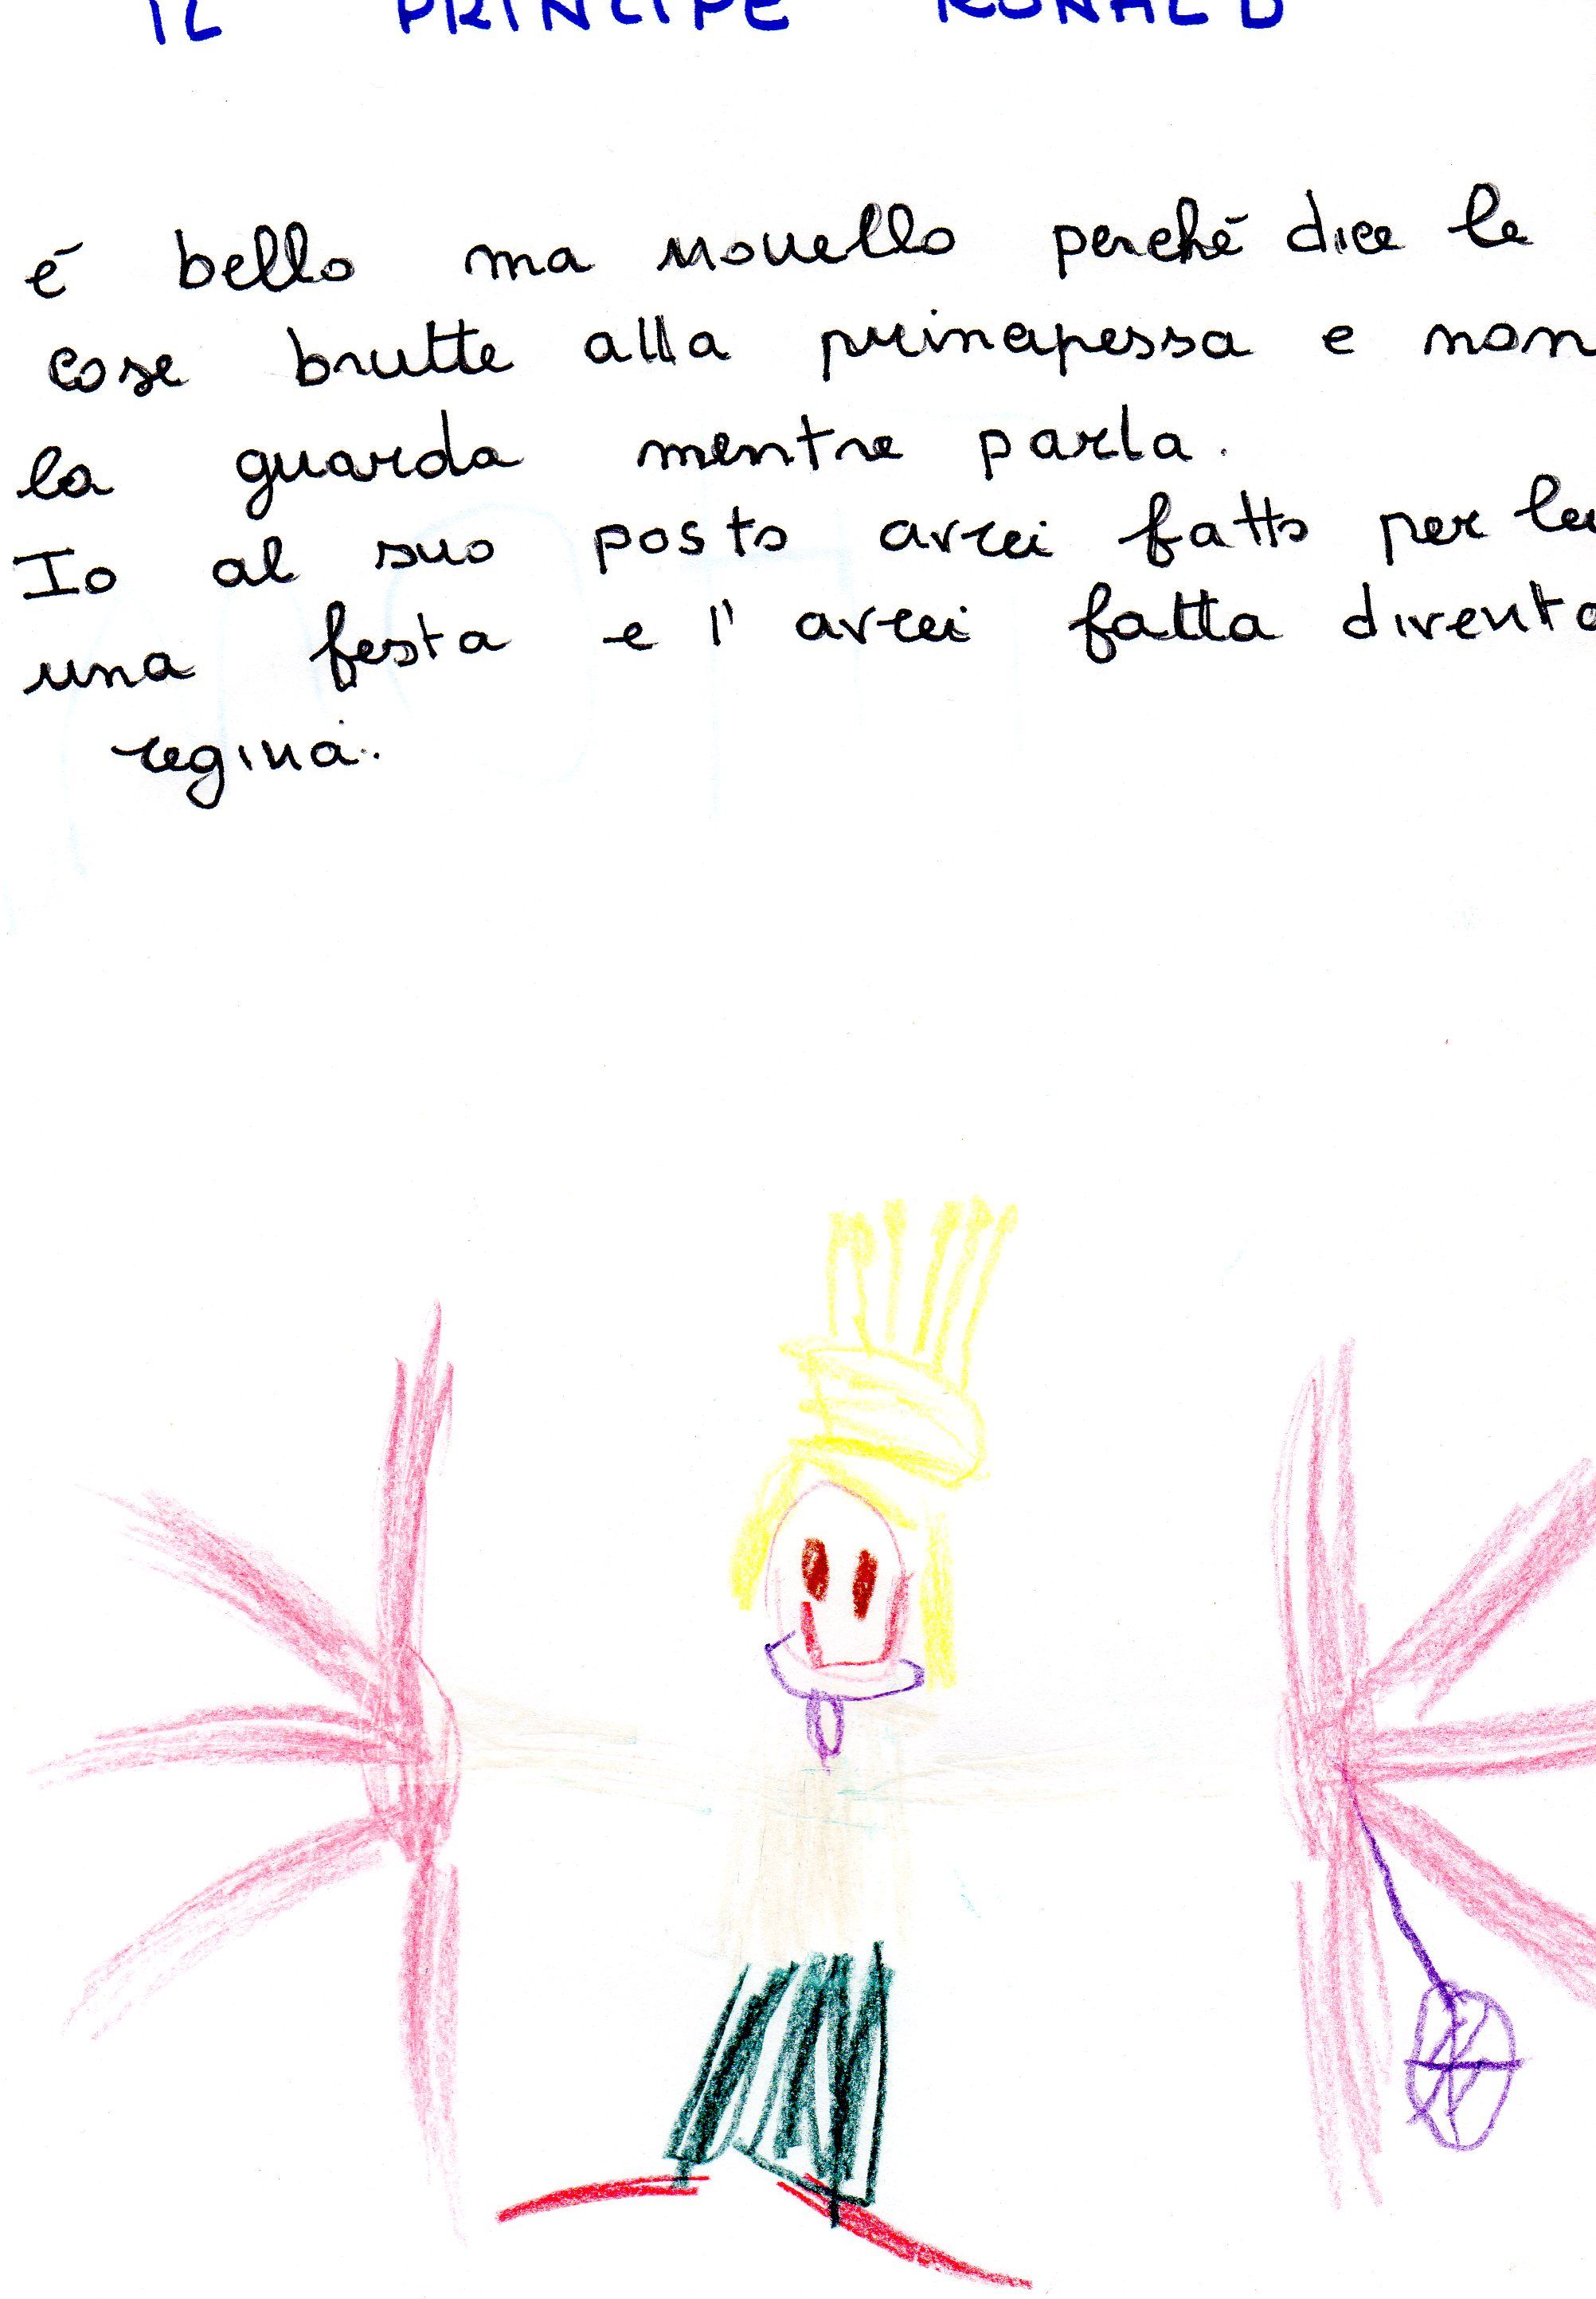 IL PRINCIPE RONALD
é bello ma monello perché dice le
cose brutte alla principessa e non
la guarda mentre parla.
Io al suo posto avrei fatto per lei
una festa e l'avrei fatta diventa
regina.